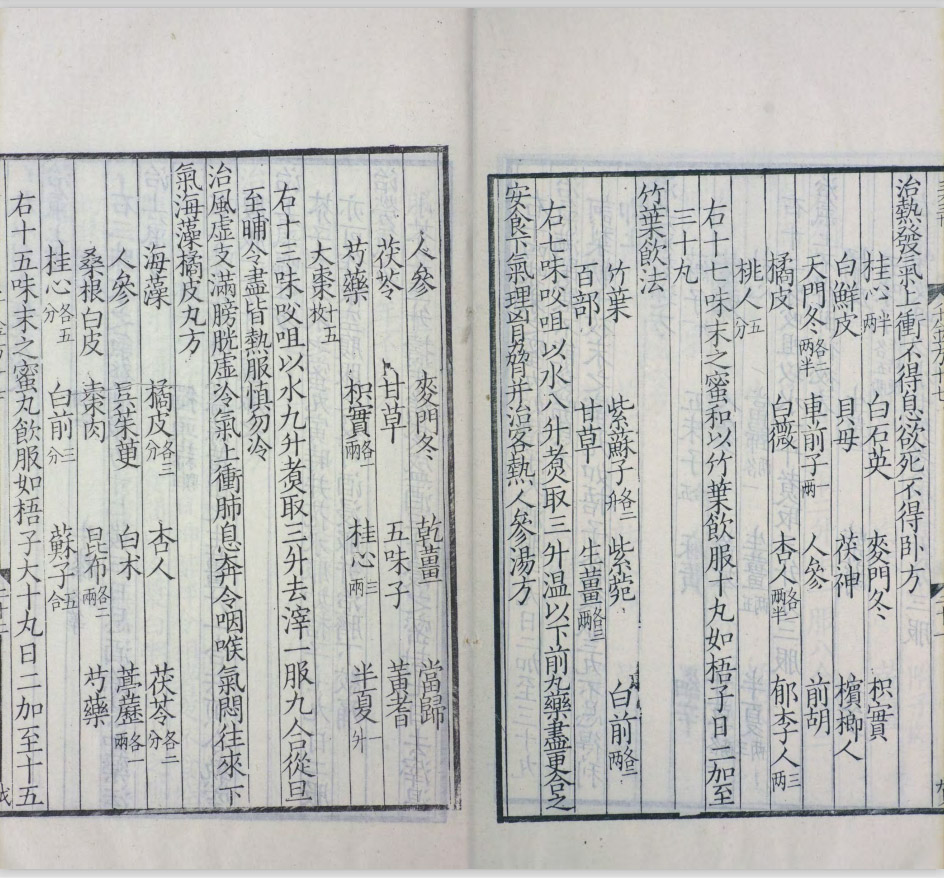 治熱發氣上衝不得息欲死不得卧方
桂心半兩 白石英 麥門冬 枳實
白鮮皮 貝母 茯神 檳榔人
天門冬各二兩半 車前子一兩 人參 前胡
橘皮 白薇 杏人各一兩半 郁李人三兩
桃人五分
右十七味末之蜜和以竹葉飲服十丸如梧子日二加至
三十丸
竹葉飲法
竹葉 紫蘇子各二升 紫菀 白前各二兩
百部 甘草 生薑各三兩
右七味㕮咀以水八升煑取三升温以下前丸藥盡更合之
安食下氣理胷脅并治客熱人參湯方
人參 麥門冬 乾薑 當歸
茯苓 甘草 五味子 黃耆
芍藥 枳實各一兩 桂心三兩 半夏一升
大棗十五枚
右十三味㕮咀以水九升煑取三升去滓一服九合從旦
至晡令盡皆熱服慎勿冷
治風虛支滿膀胱虛冷氣上衝肺息奔令咽喉氣悶往來下
氣海藻橘皮丸方
海藻 橘皮各三分 杏人 茯苓各二分
人參 吳茱萸 白朮 葶藶各一兩
桑根白皮 棗肉 昆布各二兩 芍藥
桂心各五分 白前三分 蘇子五合
右十五味末之蜜丸飲服如梧子大十丸日二加至十五